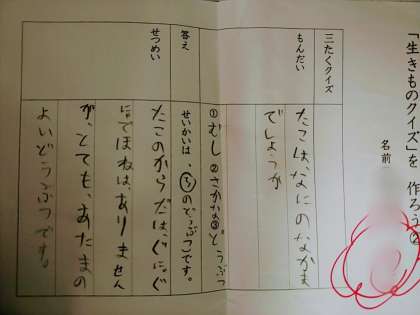 「生きものクイズ」を 作ろう②
名前
三たくクイズ
もんだい
たこは、なにのなかま
でしょうか
①むし②さかな③どうぶつ
答え
せいかいは、③のどうぶつです。
せつめい
たこのからだは、ぐにゃぐ
にゃでほねは、ありません
が、とても、あたまの
よいどうぶつです。